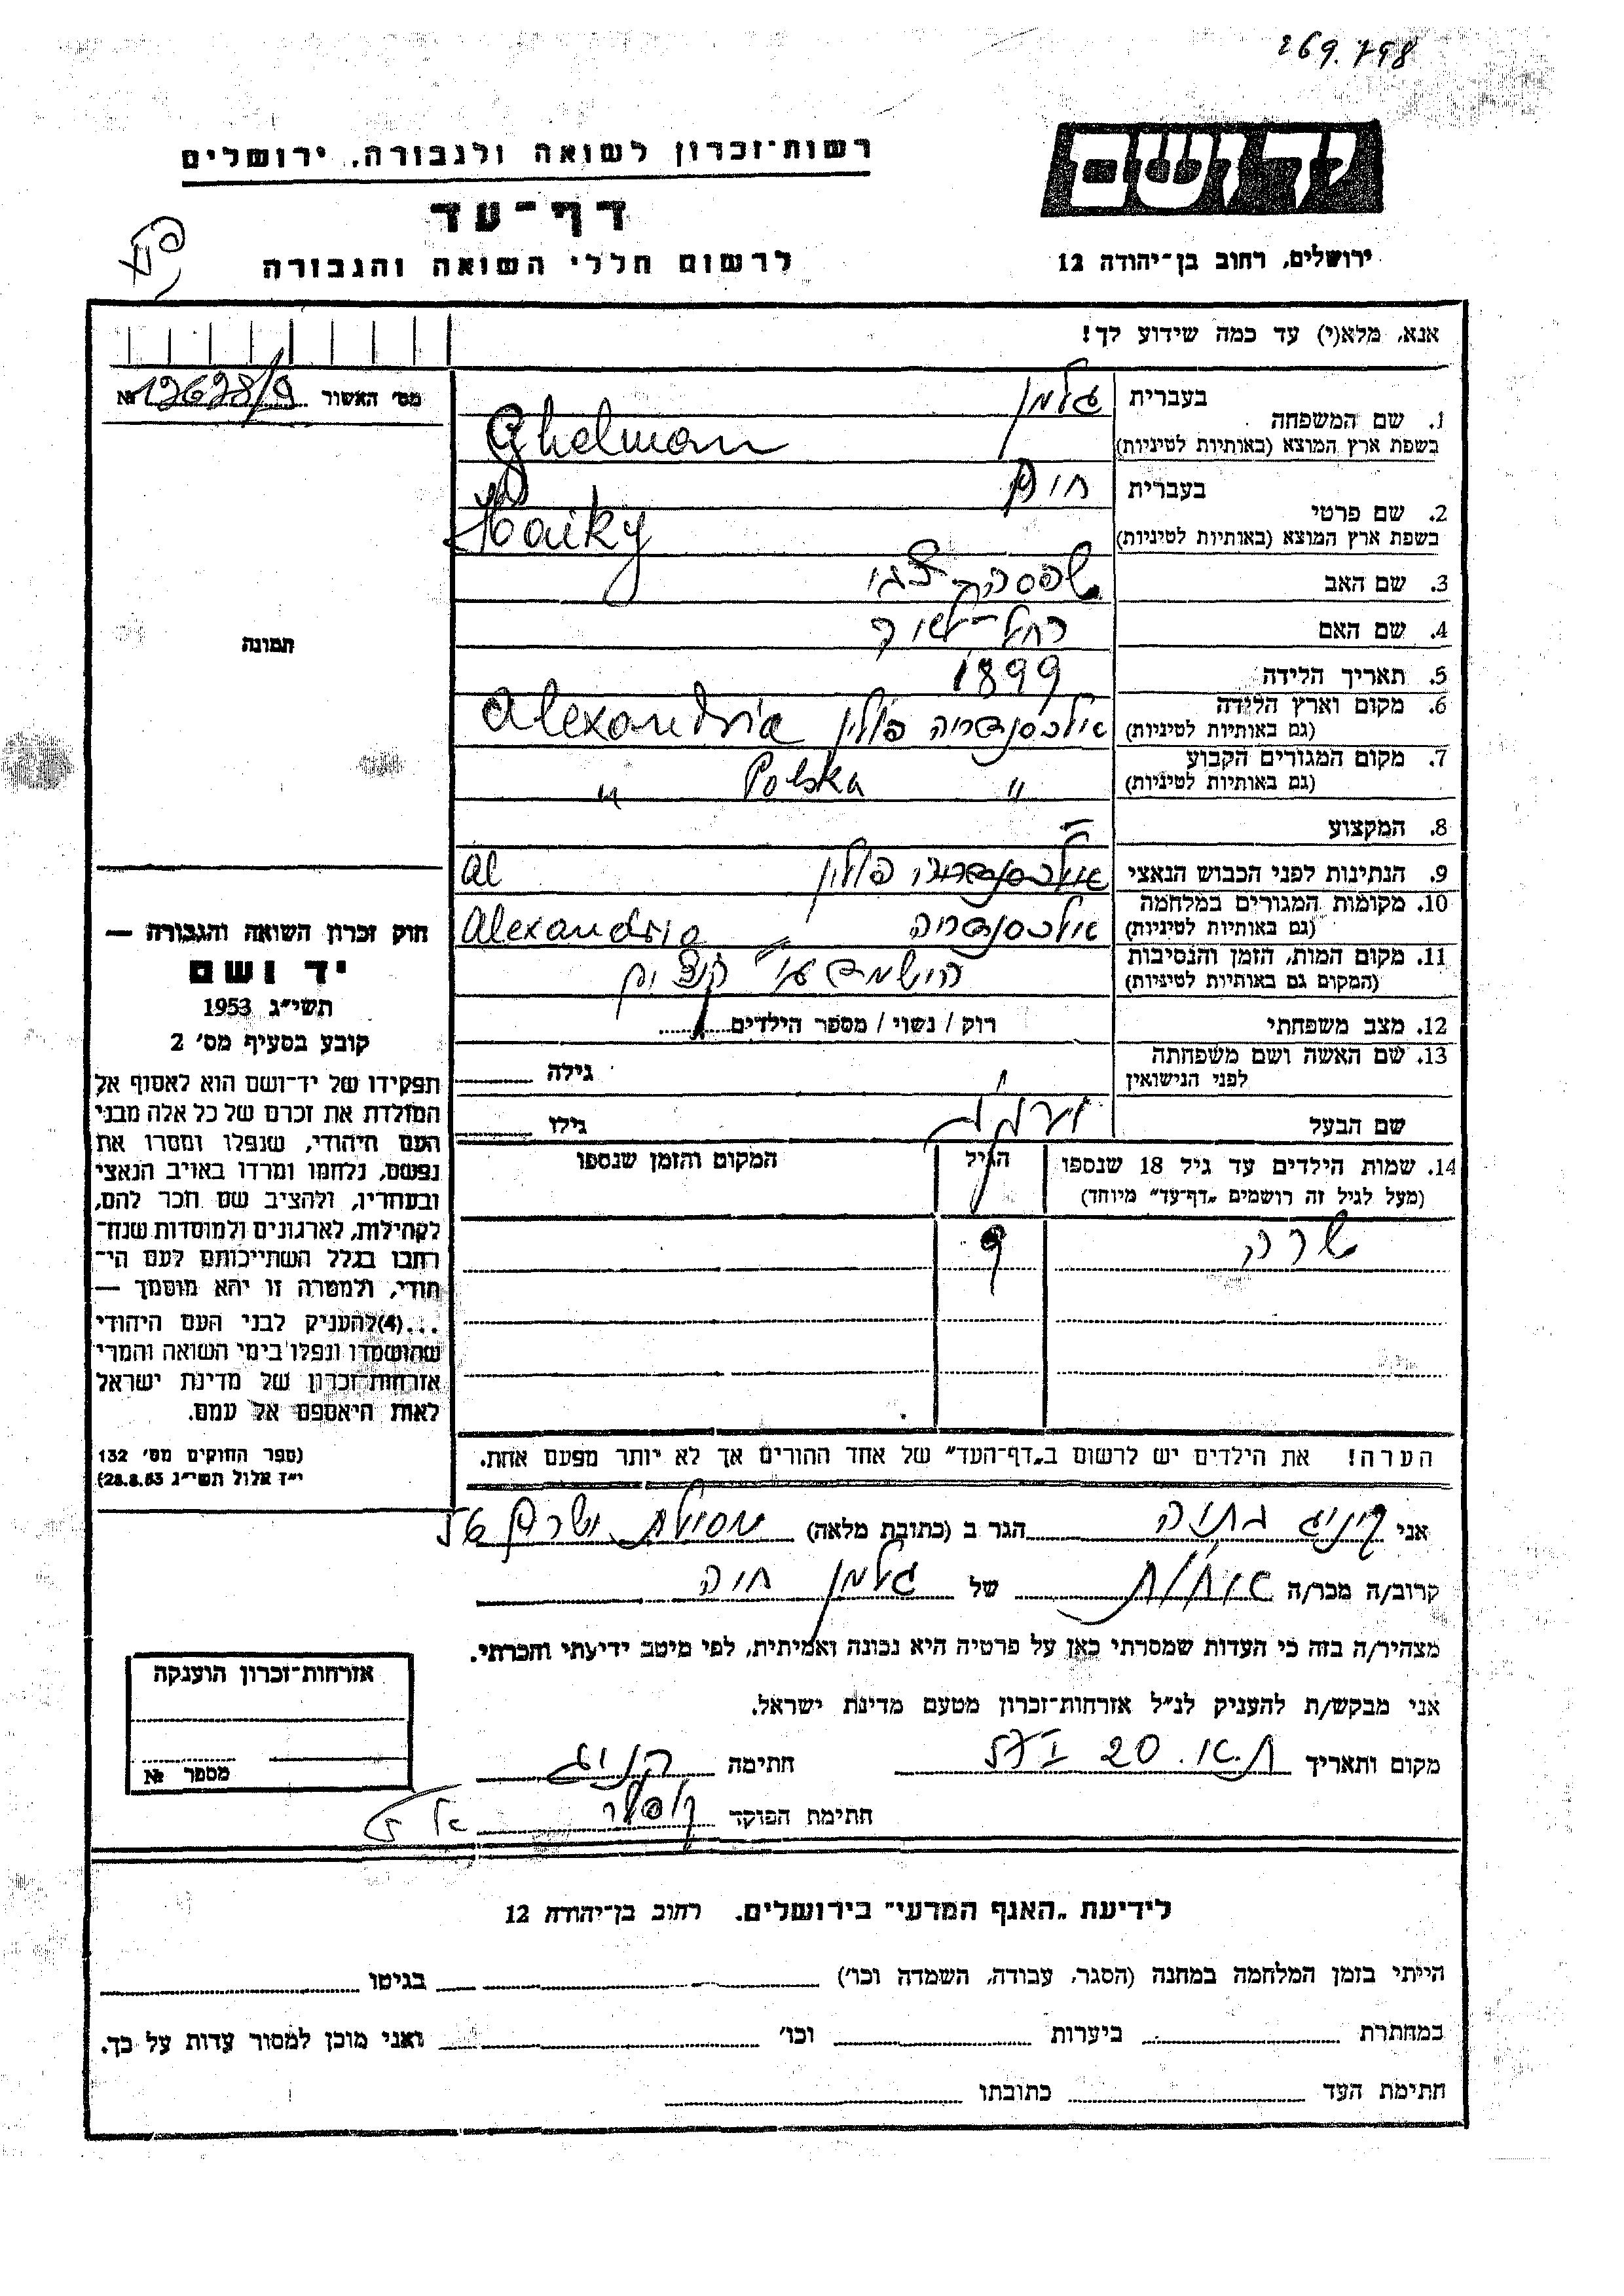 269.798
יד ושם
רשות־זכרון לשואה ולגבורה, ירושלים
דף־עד
ירושלים, רחוב בן־יהודה 12
לרשום חללי השואה והגבורה
אנא, מלא(י) עד כמה שידוע לך!
מס׳ האשור 12628/9 №
1. שם המשפחה
בעברית גלמן
בשפת ארץ המוצא (באותיות לטיניות) Ghelman
2. שם פרטי
בעברית
בשפת ארץ המוצא (באותיות לטיניות) Haiky
3. שם האב
4. שם האם רחל־
5. תאריך הלידה 1899
6. מקום וארץ הלידה
(גם באותיות לטיניות) אילכסנדריה פולין Alexandria
7. מקום המגורים הקבוע
(גם באותיות לטיניות) " Polska "
8. המקצוע
9. הנתינות לפני הכבוש הנאצי פולין al
10. מקומות המגורים במלחמה
(גם באותיות לטיניות) אילכסנדריה Alexandria
11. מקום המות, הזמן והנסיבות
(המקום גם באותיות לטיניות)
12. מצב משפחתי רוק / נשוי / מספר הילדים
13. שם האשה ושם משפחתה
לפני הנישואין גילה
שם הבעל גילו
14. שמות הילדים עד גיל 18 שנספו הגיל המקום והזמן שנספו
(מעל לגיל זה רושמים „דף־עד״ מיוחד)
שרה 9
הערה! את הילדים יש לרשום ב„דף־העד״ של אחד ההורים אך לא יותר מפעם אחת.
תמונה
חוק זכרון השואה והגבורה —
יד ושם
תשי״ג 1953
קובע בסעיף מס׳ 2
תפקידו של יד־ושם הוא לאסוף אל
המולדת את זכרם של כל אלה מבני
העם היהודי, שנפלו ומסרו את
נפשם, נלחמו ומרדו באויב הנאצי
ובעוזריו, ולהציב שם וזכר להם,
לקהילות, לארגונים ולמוסדות שנח־
רבו בגלל השתייכותם לעם הי־
הודי, ולמטרה זו יהא מוסמך —
...(4) להעניק לבני העם היהודי
שהושמדו ונפלו בימי השואה והמרי
אזרחות־זכרון של מדינת ישראל
לאות היאספם אל עמם.
(ספר החוקים מס׳ 132
י״ז אלול תשי״ג 28.8.53)
אני הגר ב (כתובת מלאה)
קרוב/ה מכר/ה של גלמן חיה
מצהיר/ה בזה כי העדות שמסרתי כאן על פרטיה היא נכונה ואמיתית, לפי מיטב ידיעתי והכרתי.
אני מבקש/ת להעניק לנ״ל אזרחות־זכרון מטעם מדינת ישראל.
מקום ותאריך ת.א. 20 חתימה קניג
חתימת הפוקד
אזרחות־זכרון הוענקה
מספר №
לידיעת „האגף המדעי״ בירושלים. רחוב בן־יהודה 12
הייתי בזמן המלחמה במחנה (הסגר, עבודה, השמדה וכו׳) בגיטו
במחתרת ביערות וכו׳ ואני מוכן למסור עדות על כך.
חתימת העד כתובתו